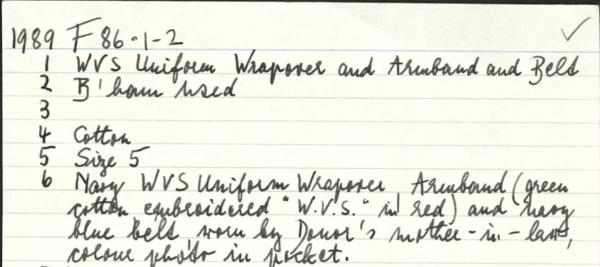 1989 F86·1-2
1 WVS Uniform Wrapover and Armband and Belt
2 B'ham used
3
4 Cotton
5 Size 5
6 Navy WVS Uniform Wrapover Armband (green
cotton embroidered "W.V.S." in red) and navy
blue belt worn by Donor's mother-in-law,
colour photo in pocket.